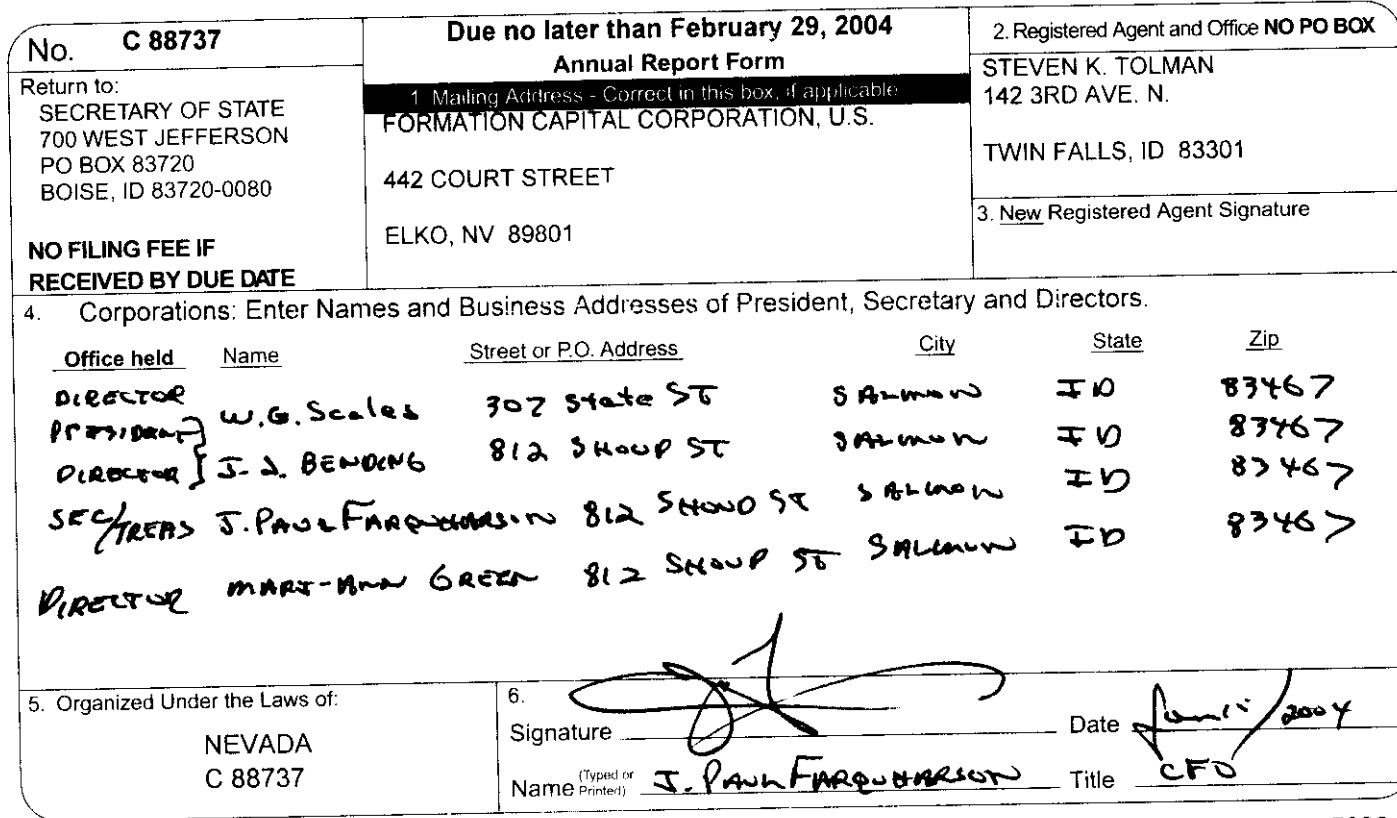 No. C 88737
Return to:
SECRETARY OF STATE
700 WEST JEFFERSON
PO BOX 83720
BOISE, ID 83720-0080
NO FILING FEE IF
RECEIVED BY DUE DATE
Due no later than February 29, 2004
Annual Report Form
1 Mailing Address - Correct in this box, if applicable
FORMATION CAPITAL CORPORATION, U.S.
442 COURT STREET
ELKO, NV 89801
2. Registered Agent and Office NO PO BOX
STEVEN K. TOLMAN
142 3RD AVE. N.
TWIN FALLS, ID 83301
3. New Registered Agent Signature
4. Corporations: Enter Names and Business Addresses of President, Secretary and Directors.
Office held Name Street or P.O. Address City State Zip
DIRECTOR W.G. Scales 307 State ST SALMON ID 83467
PRESIDENT
DIRECTOR BENDING 812 SHOUP ST SALMON ID 83467
SEC/TREAS J. PAUL FARQUHARSON 812 SHOUP ST SALMON ID 83467
DIRECTOR GREEN 812 SHOUP ST SALMON ID 83467
5. Organized Under the Laws of:
NEVADA
C 88737
6.
Signature Date 2004
Name (Typed or Printed) J. PAUL FARQUHARSON Title CFO